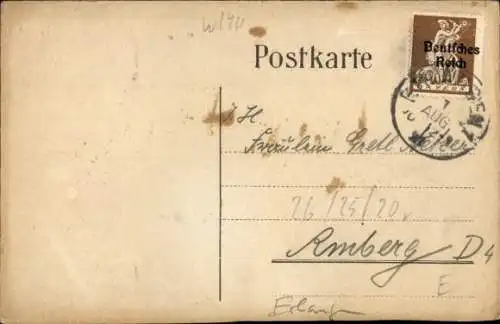 Postkarte
Deutsches
Reich
AUG
Fräulein Gretl
26/25/20
Amberg D4
E
Erlangen